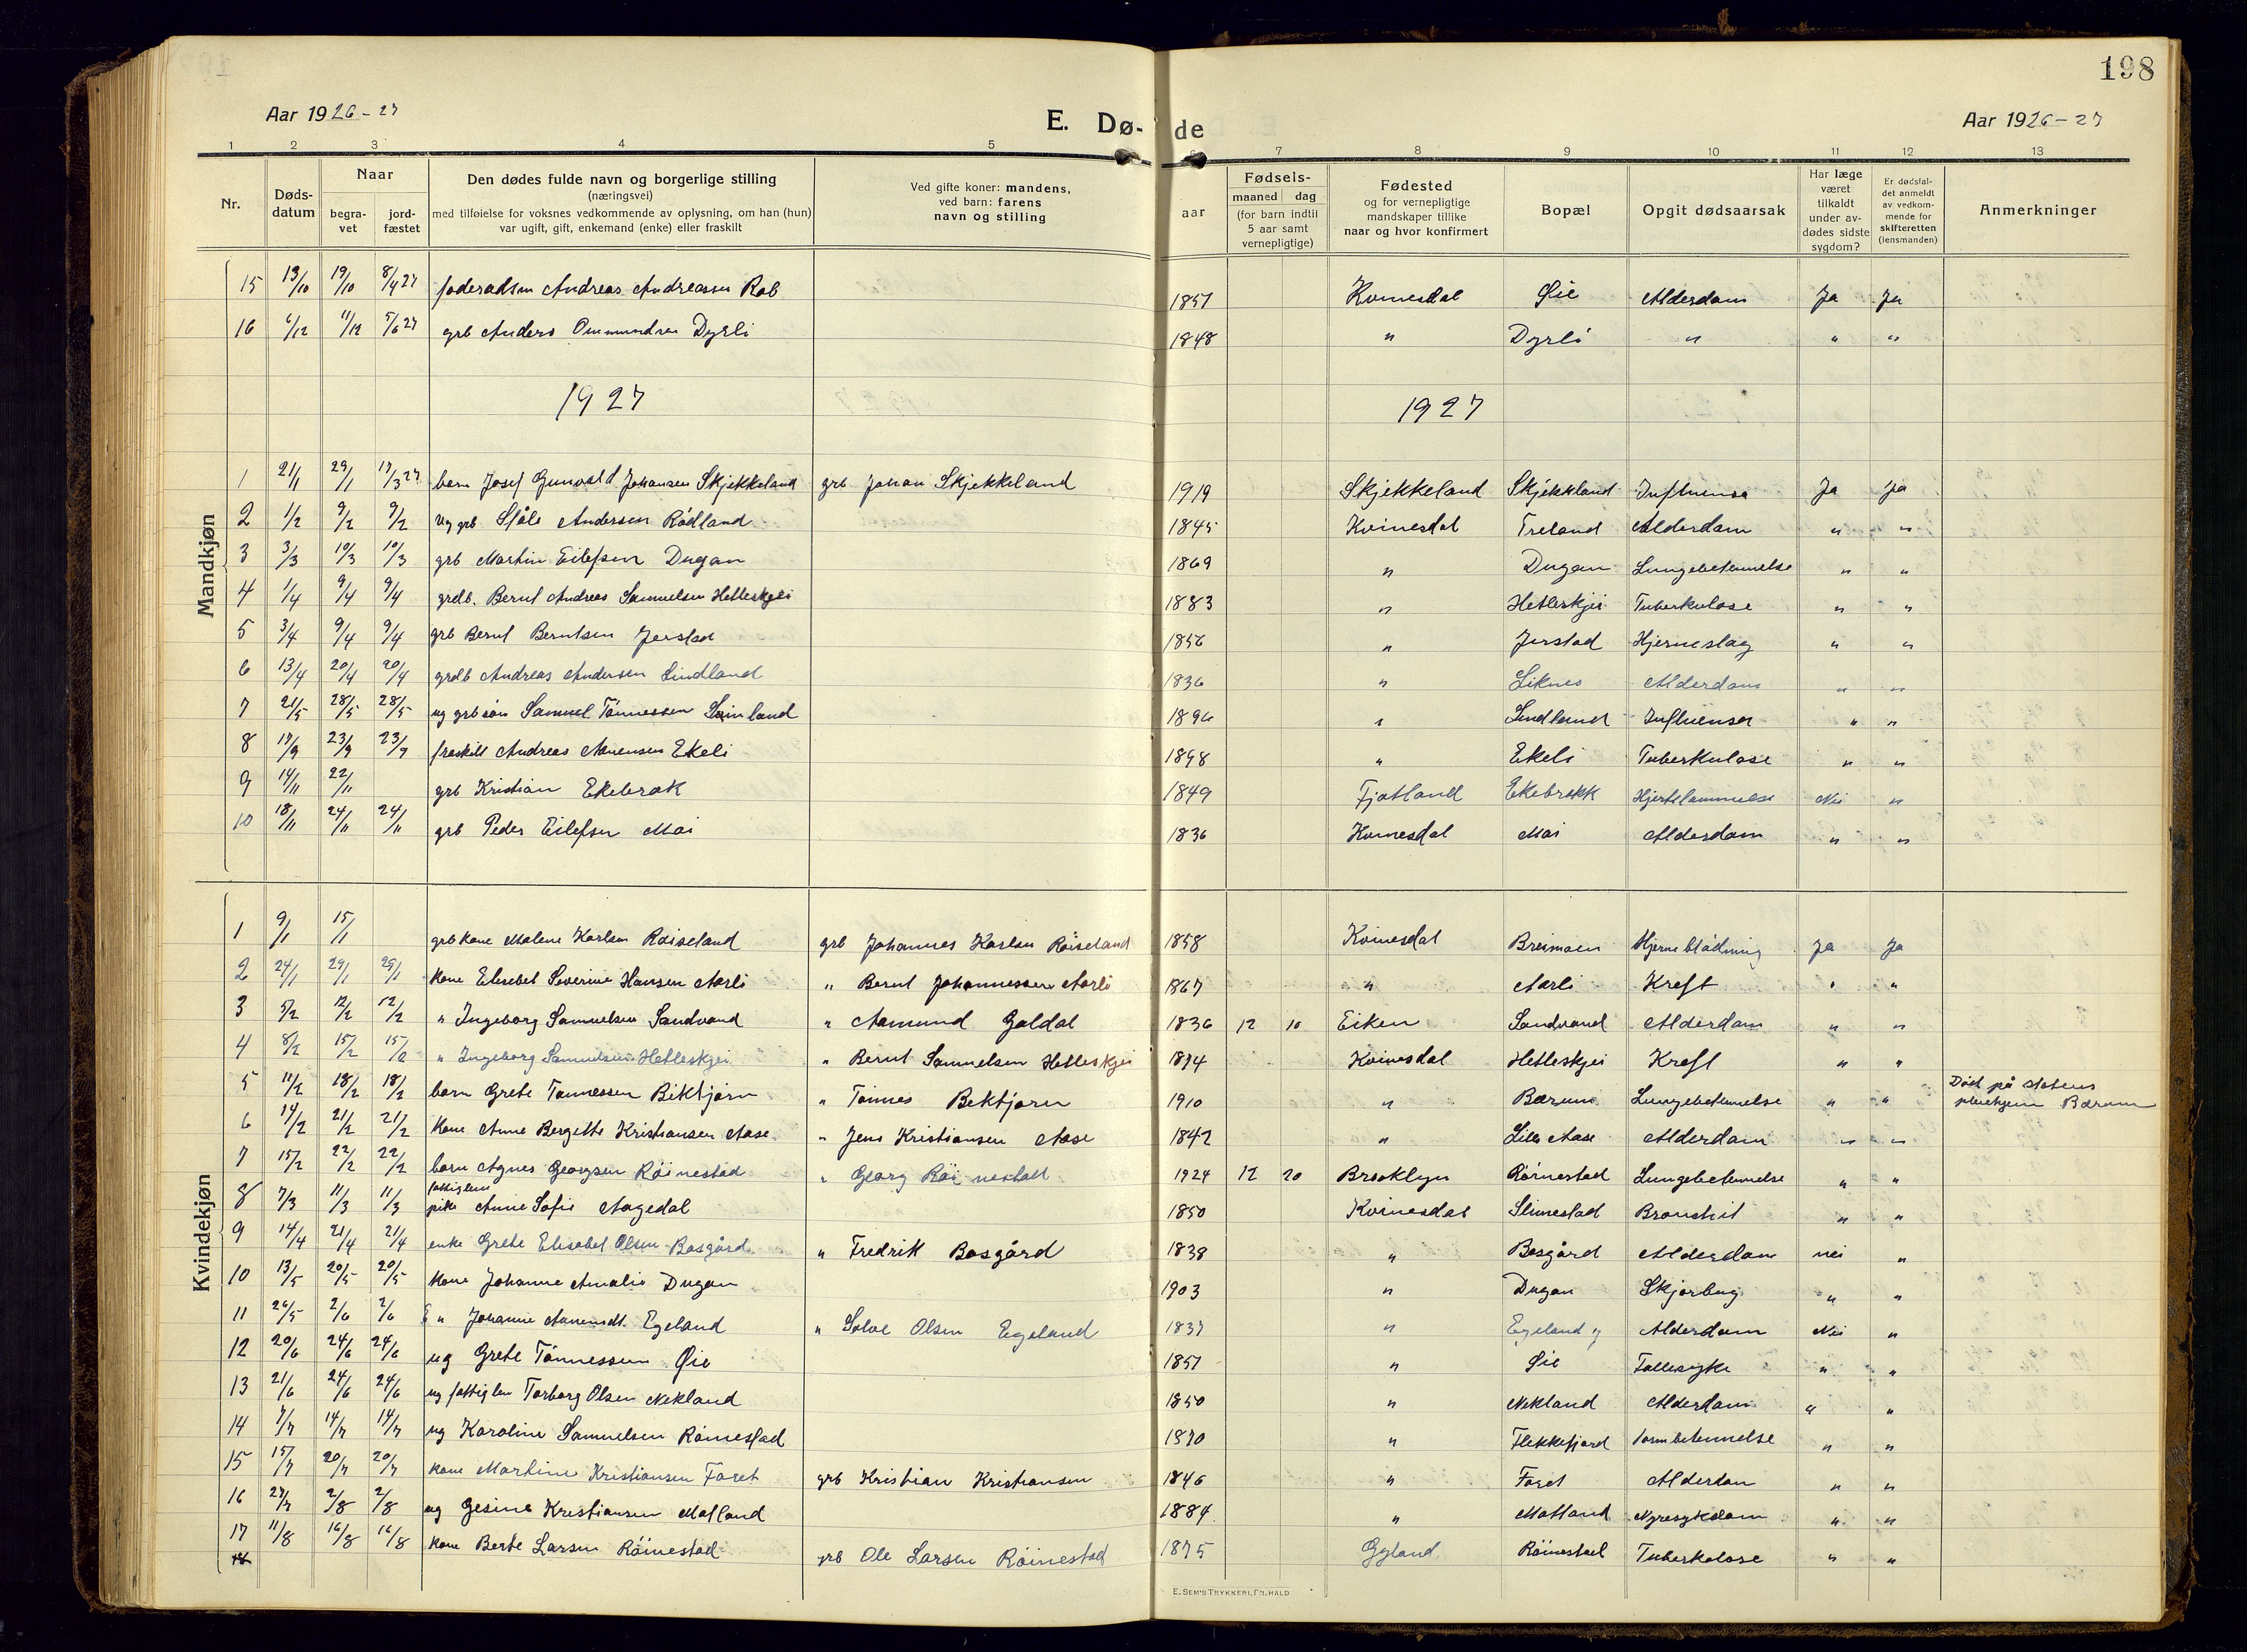 198
Aar 1926-27
E. Dø- de
Aar 1926-27
1 2 3 4 5 6 7 8 9 10 11 12 13
Nr.
Døds-
datum
Naar
begra-
vet
jord-
fæstet
Den dødes fulde navn og borgerlige stilling
(næringsvei)
med tilføielse for voksnes vedkommende av oplysning, om han (hun)
var ugift, gift, enkemand (enke) eller fraskilt
Ved gifte koner: mandens,
ved barn: farens
navn og stilling
aar
Fødsels-
maaned dag
(for barn indtil
5 aar samt
vernepligtige)
Fødested
og for vernepligtige
mandskaper tillike
naar og hvor konfirmert
Bopæl
Opgit dødsaarsak
Har læge
været
tilkaldt
under av-
dødes sidste
sygdom?
Er dødsfal-
det anmeldt
av vedkom-
mende for
skifteretten
(lensmanden)
Anmerkninger
Mandkjøn
15 13/10 19/10 8/4 27 foderadsm Andreas Andreassen Rob 1857 Kvinesdal Øie Alderdom Ja Ja
16 6/12 11/12 5/6 27 grb Anders Ommundsen Dyrli 1848 " Dyrli " " "
1927 1927
1 21/1 29/1 17/3 27 barn Josef Gunvald Johansen Skjekkeland grb Johan Skjekkeland 1919 Skjekkeland Skjekkland Influensa Ja Ja
2 1/2 9/2 9/2 ug grb Ståle Andersen Rødland 1845 Kvinesdal Treland Alderdom " "
3 3/3 10/3 10/3 grb Martin Eilefsen Dugan 1869 " Dugan Lungebetennelse " "
4 1/4 9/4 9/4 grdb. Bernt Andreas Samuelsen Hetleskjei 1883 " Hetleskjei Tuberkulose " "
5 3/4 9/4 9/4 grb Bernt Berntsen Jerstad 1856 " Jerstad Hjerneslag " "
6 13/4 20/4 20/4 grdb Andreas Andersen Lindland 1836 " Liknes Alderdom " "
7 21/5 28/5 28/5 ug grb sön Samuel Tönnessen Lindland 1896 " Lindland Influensa " "
8 17/9 23/9 23/9 fraskilt Andreas Anensen Ekeli 1898 " Ekeli Tuberkulose " "
9 14/11 22/11 grb Kristian Ekebrok 1849 Fjotland Ekebrokk Hjertelammelse Nei "
10 18/11 24/11 24/11 grb Peder Eilefsen Moi 1836 Kvinesdal Moi Alderdom " "
Kvindekjøn
1 9/1 15/1 grb kone Malene Karlsen Röiseland grb Johannes Karlsen Röiseland 1858 Kvinesdal Breimoen Hjerneblödning Ja Ja
2 24/1 29/1 29/1 kone Elisebet Severine Hansen Aarli " Bernt Johannessen Aarli 1867 " Aarli Kreft " "
3 5/2 12/2 12/2 " Ingeborg Samuelsen Sandvand " Aamund Galdal 1836 12 10 Eiken Sandvand Alderdom " "
4 8/2 15/2 15/2 " Ingeborg Samuelsen Hetleskjei " Bernt Samuelsen Hetleskjei 1894 Kvinesdal Hetleskjei Kreft " "
5 11/2 18/2 18/2 barn Grete Tönnessen Bektjörn " Tönnes Bektjorn 1910 " Bærum Lungebetennelse " " Död på statens pleiehjem Bærum
6 14/2 21/2 21/2 kone Anne Bergitte Kristiansen Aase " Jens Kristiansen Aase 1842 " Lille Aase Alderdom " "
7 15/2 22/2 22/2 barn Agnes Georgsen Röinestad " Georg Röinestad 1924 12 20 Brooklyn Röinestad Lungebetennelse " "
8 7/3 11/3 11/3 fattiglem pike Anne Sofie Aagedal 1850 Kvinesdal Slimestad Bronchit " "
9 14/4 21/4 21/4 enke Grete Elisabet Olsen Bosgård " Fredrik Bosgård 1838 " Bosgård Alderdom nei "
10 13/5 20/5 20/5 kone Johanne Amalie Dugan 1903 " Dugan Skjørbug " "
11 26/5 2/6 2/6 " Johanne Aanensdt. Egeland " Solve Olsen Egeland 1837 " Egeland Alderdom Nei "
12 20/6 24/6 24/6 ug Grete Tönnessen Øie 1857 " Øie Fallesyke " "
13 21/6 24/6 24/6 ug fattiglem Torborg Olsen Nekland 1850 " Nekland Alderdom " "
14 7/7 14/7 14/7 ug Karoline Samuelsen Röinestad 1870 " Flekkefjord Tarmbetennelse " "
15 15/7 20/7 20/7 kone Martine Kristiansen Foret grb Kristian Kristiansen 1846 " Foret Alderdom " "
16 27/7 2/8 2/8 ug Gesine Kristiansen Motland 1884 " Motland Nyresykdom " "
17 11/8 16/8 16/8 kone Berte Larsen Röinestad grb Ole Larsen Röinestad 1875 Gyland Röinestad Tuberkulose " "
18
E. SEM'S TRYKKERI, FR.HALD